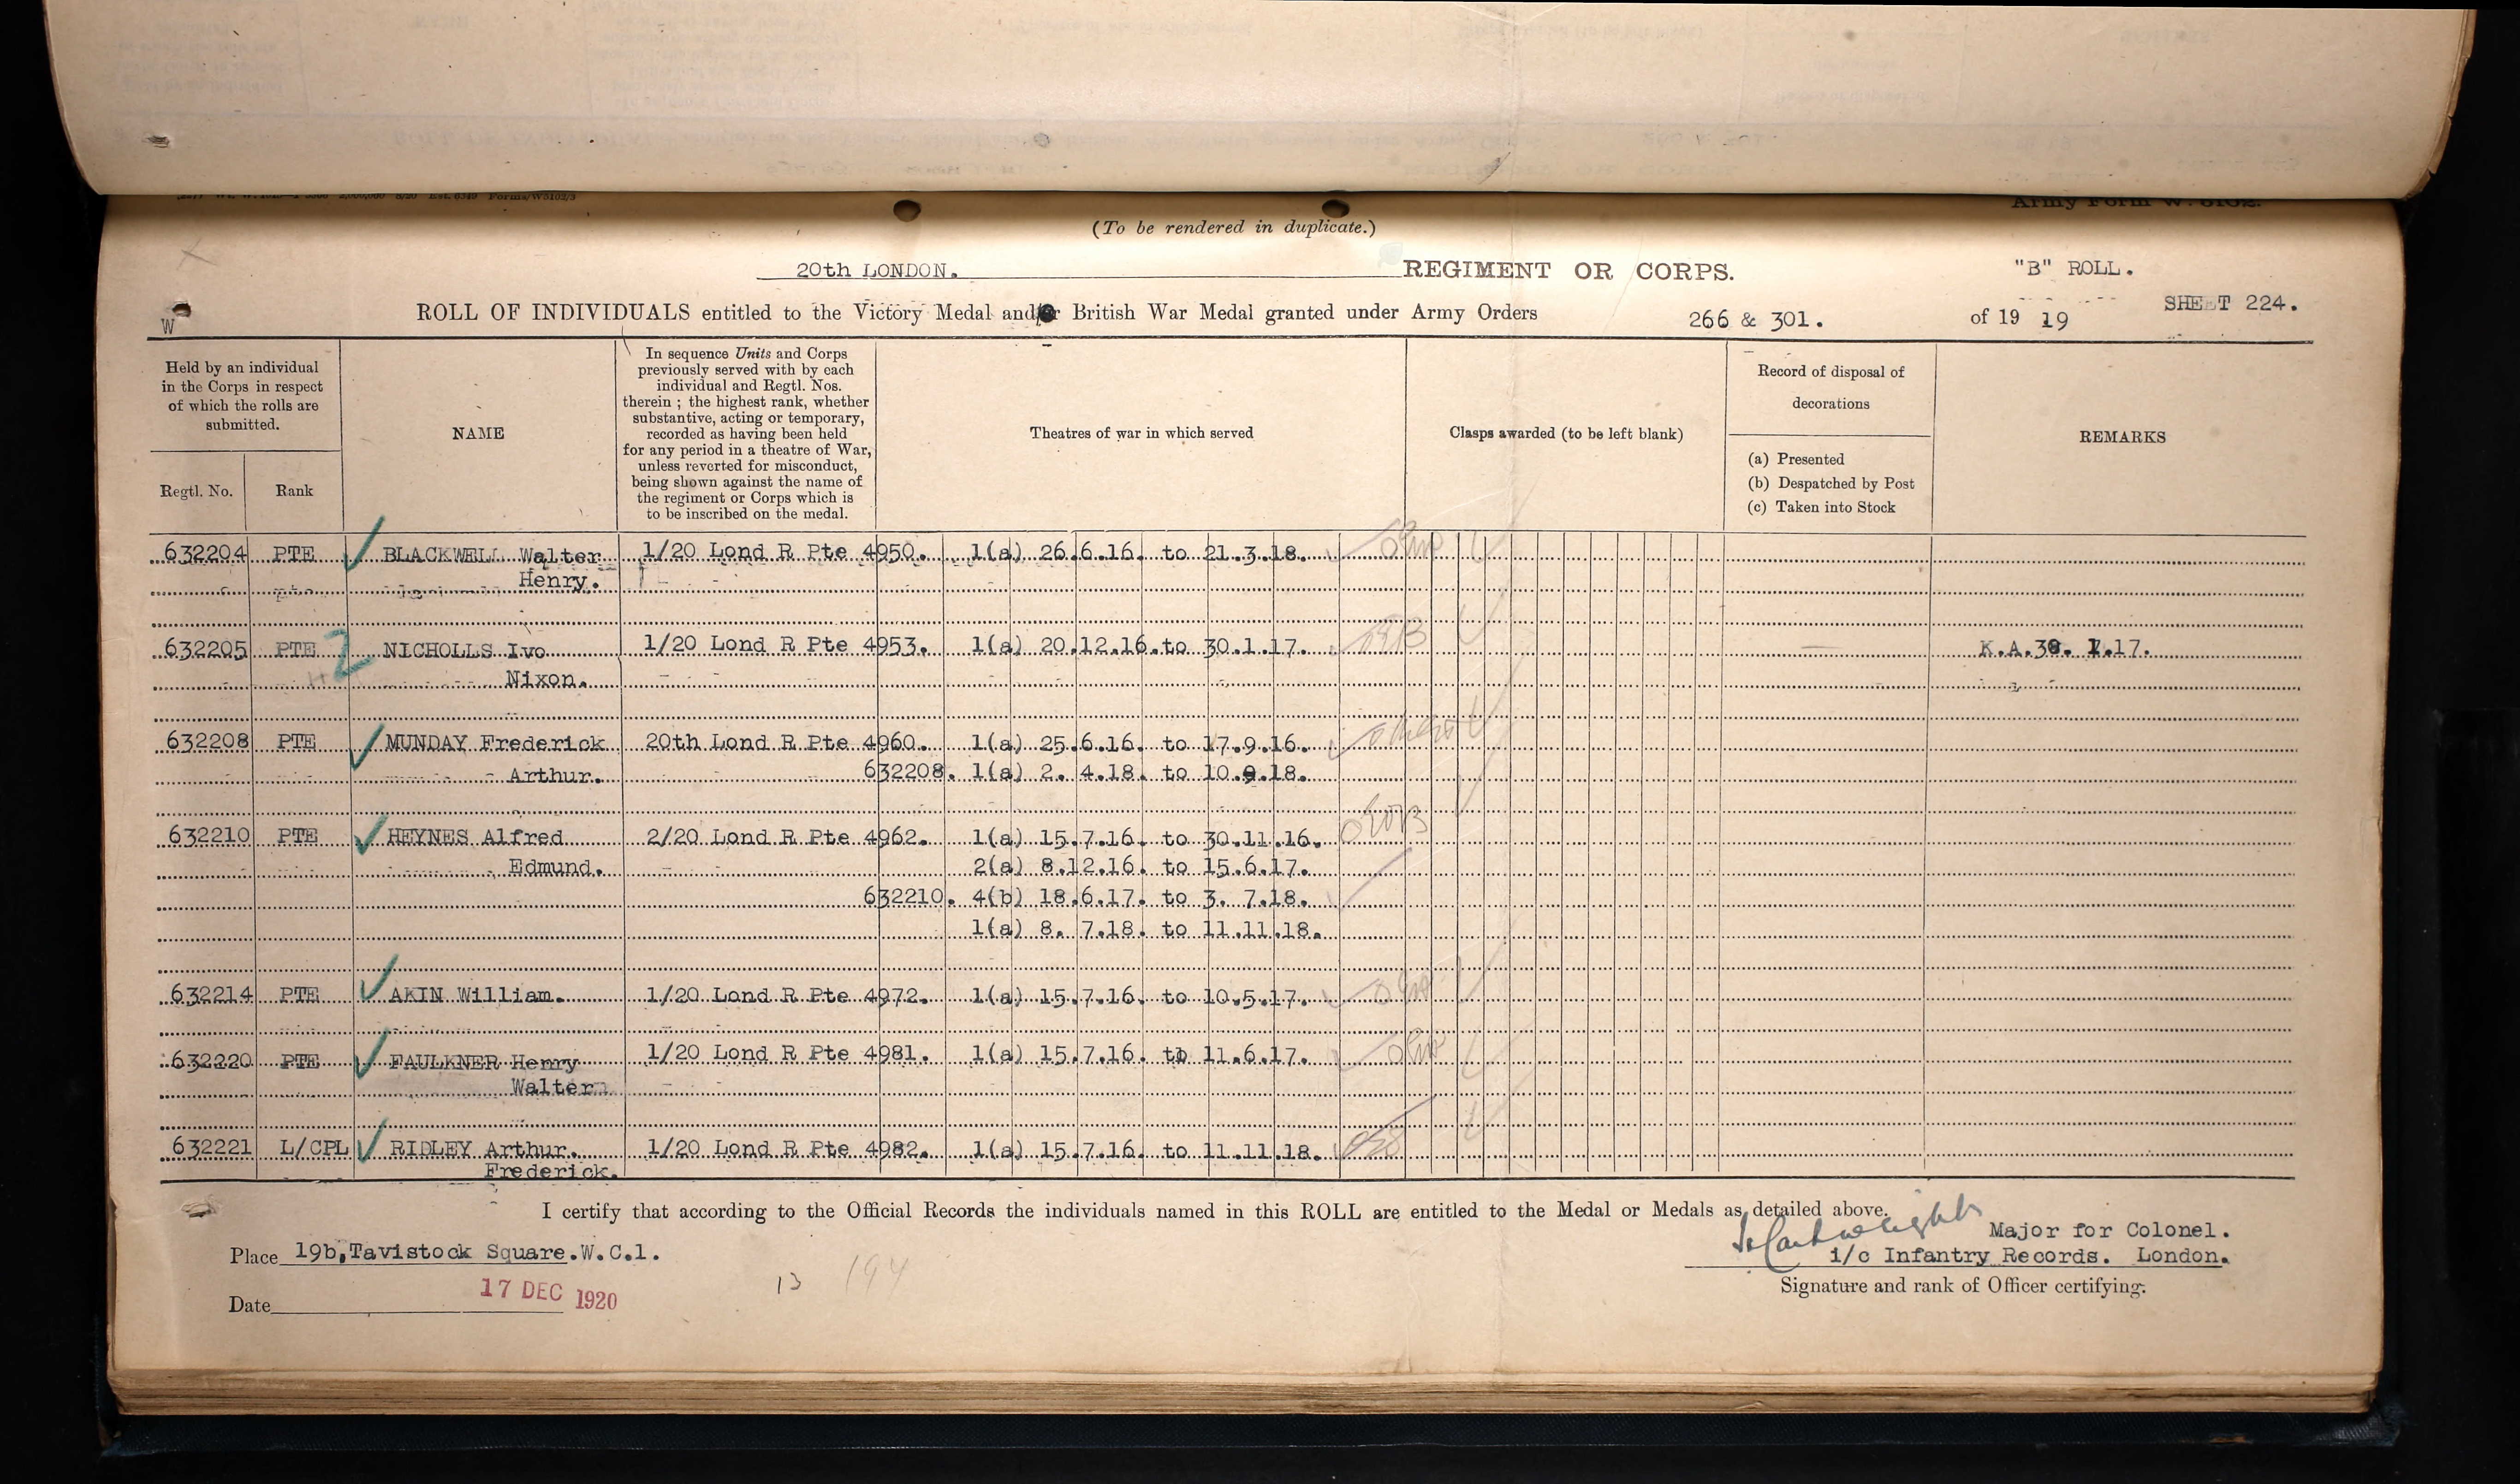 (To be rendered in duplicate.)
20th LONDON. REGIMENT OR CORPS. "B" ROLL.
ROLL OF INDIVIDUALS entitled to the Victory Medal and/or British War Medal granted under Army Orders 266 & 301. of 19 19 SHEET 224.
W
Held by an individual
in the Corps in respect
of which the rolls are
submitted.
Regtl. No. Rank
NAME
In sequence Units and Corps
previously served with by each
individual and Regtl. Nos.
therein ; the highest rank, whether
substantive, acting or temporary,
recorded as having been held
for any period in a theatre of War,
unless reverted for misconduct,
being shown against the name of
the regiment or Corps which is
to be inscribed on the medal.
Theatres of war in which served
Clasps awarded (to be left blank)
Record of disposal of
decorations
(a) Presented
(b) Despatched by Post
(c) Taken into Stock
REMARKS
632204 PTE BLACKWELL Walter 1/20 Lond R Pte 4950. 1(a) 26.6.16. to 21.3.18.
Henry.
632205 PTE 2 NICHOLLS Ivo 1/20 Lond R Pte 4953. 1(a) 20.12.16. to 30.1.17. K.A.30. 1.17.
Nixon.
632208 PTE MUNDAY Frederick 20th Lond R Pte 4960. 1(a) 25.6.16. to 17.9.16.
Arthur. 632208. 1(a) 2. 4.18. to 10.9.18.
632210 PTE HEYNES Alfred 2/20 Lond R Pte 4962. 1(a) 15.7.16. to 30.11.16.
Edmund. 2(a) 8.12.16. to 15.6.17.
632210. 4(b) 18.6.17. to 3. 7.18.
1(a) 8. 7.18. to 11.11.18.
632214 PTE AKIN William. 1/20 Lond R Pte 4972. 1(a) 15.7.16. to 10.5.17.
632220 PTE FAULKNER Henry 1/20 Lond R Pte 4981. 1(a) 15.7.16. to 11.6.17.
Walter
632221 L/CPL RIDLEY Arthur. 1/20 Lond R Pte 4982. 1(a) 15.7.16. to 11.11.18.
Frederick.
I certify that according to the Official Records the individuals named in this ROLL are entitled to the Medal or Medals as detailed above.
Major for Colonel.
Place 19b, Tavistock Square.W.C.1. i/c Infantry Records. London.
13 194
Signature and rank of Officer certifying.
Date 17 DEC 1920